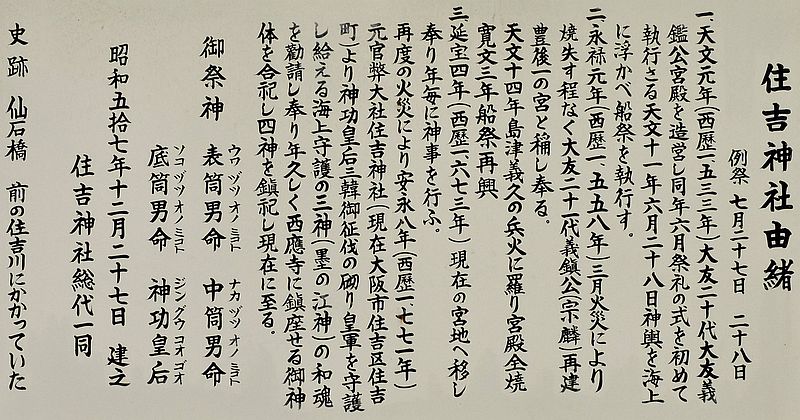 住吉神社由緒
例祭 七月二十七日 二十八日
一、天文元年(西歴一、五三三年)大友二十代大友義
鑑公宮殿を造営し同年六月祭礼の式を初めて
執行さる天文十一年六月二十八日神輿を海上
に浮かべ船祭を執行す。
二、永禄元年(西歴一、五五八年)三月火災により
焼失す程なく大友二十一代義鎮公(宗麟)再建
豊後一の宮と稱し奉る。
天文十四年島津義久の兵火に罹り宮殿全焼
寛文三年船祭再興
三、延宝四年(西歴一、六七三年)現在の宮地へ移し
奉り年毎に神事を行ふ。
再度の火災により安永八年(西歴一、七七一年)
元官弊大社住吉神社(現在大阪市住吉区住吉
町)より神功皇后三韓御征伐の砌り皇軍を守護
し給える海上守護の三神(墨の江神)の和魂
を勸請し奉り年久しく西應寺に鎮座せる御神
体を合祀し四神を鎮祀し現在に至る。
御祭神 表筒男命 ウワヅツオノミコト 中筒男命 ナカヅツオノミコト
底筒男命 ソコヅツオノミコト 神功皇后 ジングウコオゴオ
昭和五拾七年十二月二十七日 建之
住吉神社総代一同
史跡 仙石橋 前の住吉川にかかっていた